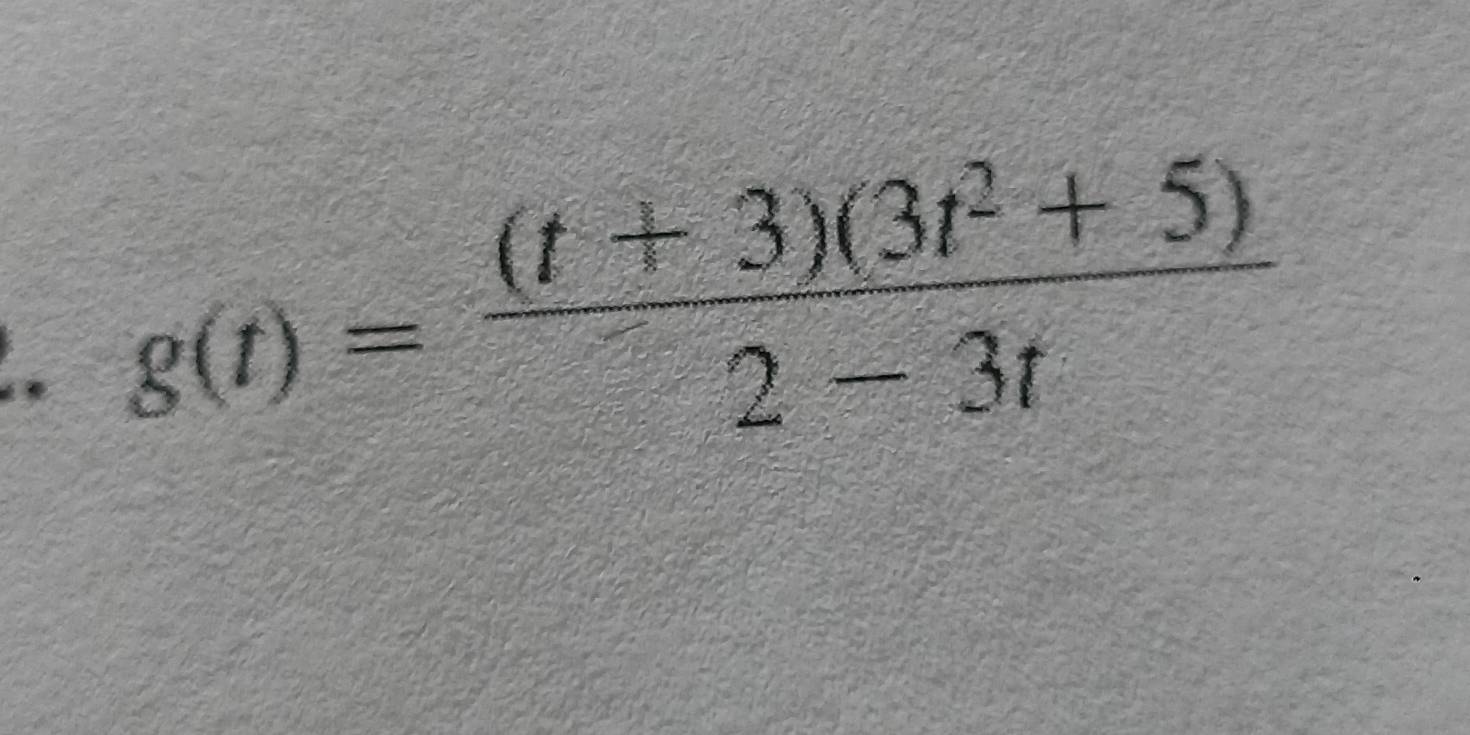 . g(t) = (t + 3)(3t² + 5) / 2 − 3t